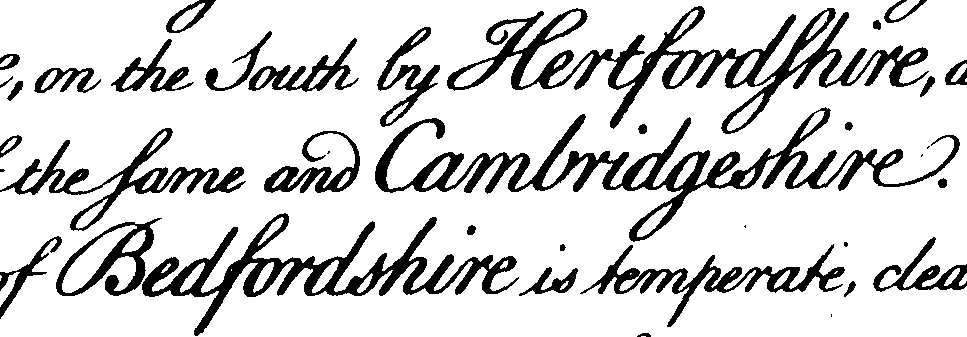 , on the South by Hertfordſhire,
the ſame and Cambridgeshire.
of Bedfordshire is temperate, clea